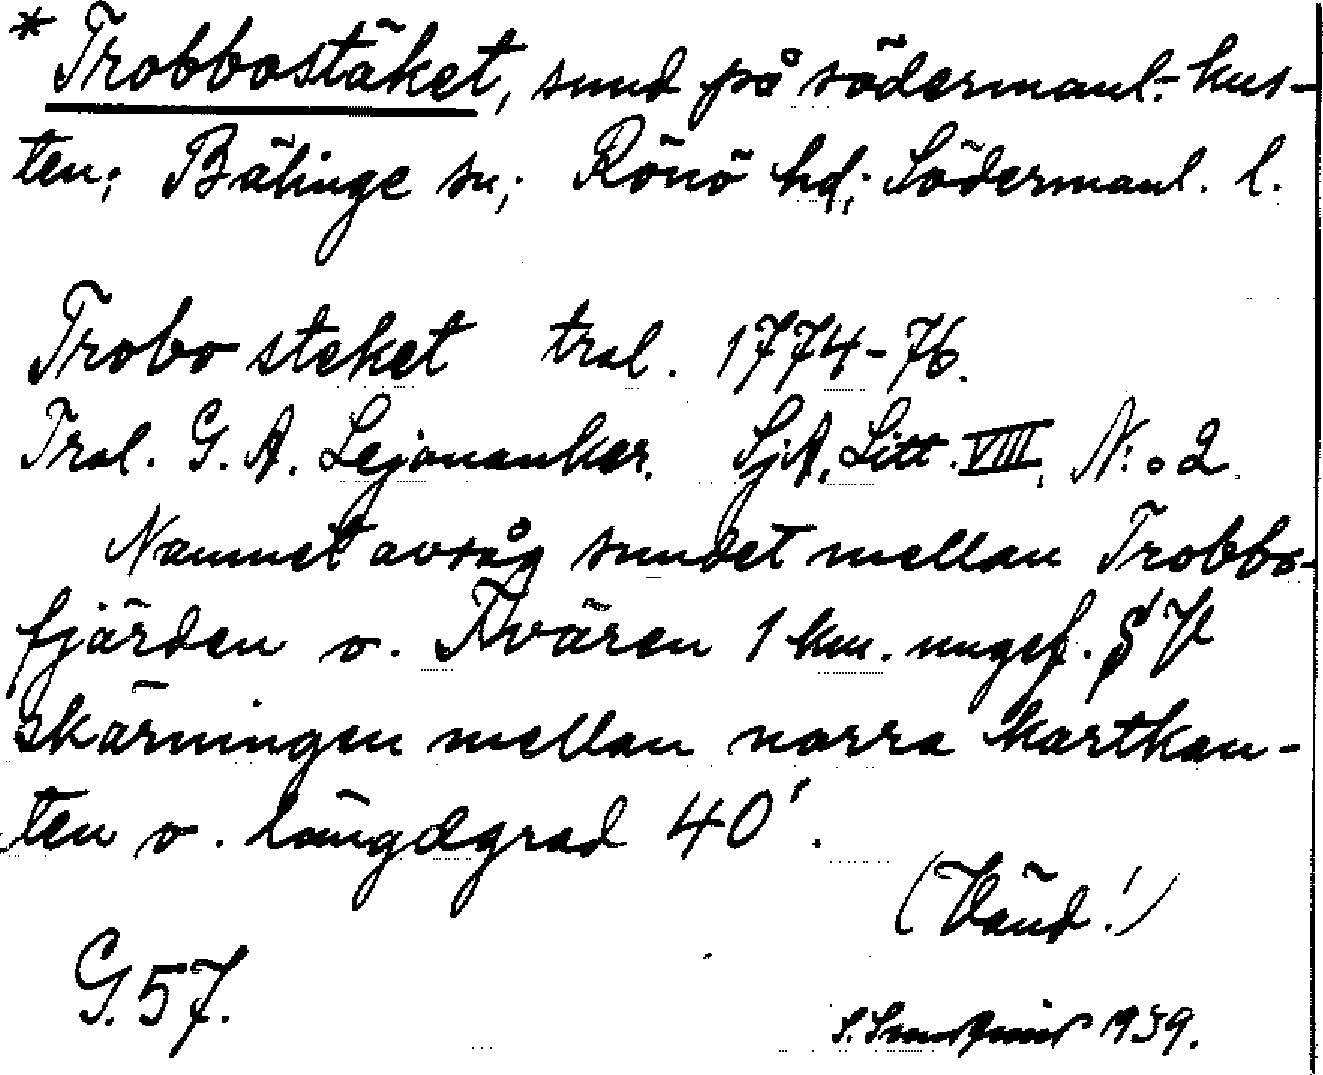 * Trobbostäket, sund på södermanl. kus-
ten; Bälinge sn; Rönö hd; Södermanl. l.
Trobo steket tral. 1774-76.
Tral. G. A. Lejonanker. SjA. Litt. VIII, N:o 2
Namnet avsåg sundet mellan Trobbo-
fjärden o. Tvären 1 km. ungef.
skärningen mellan norra kartkan-
ten o. längdgrad 40'.
(Vänd!)
G. 57.
1939.